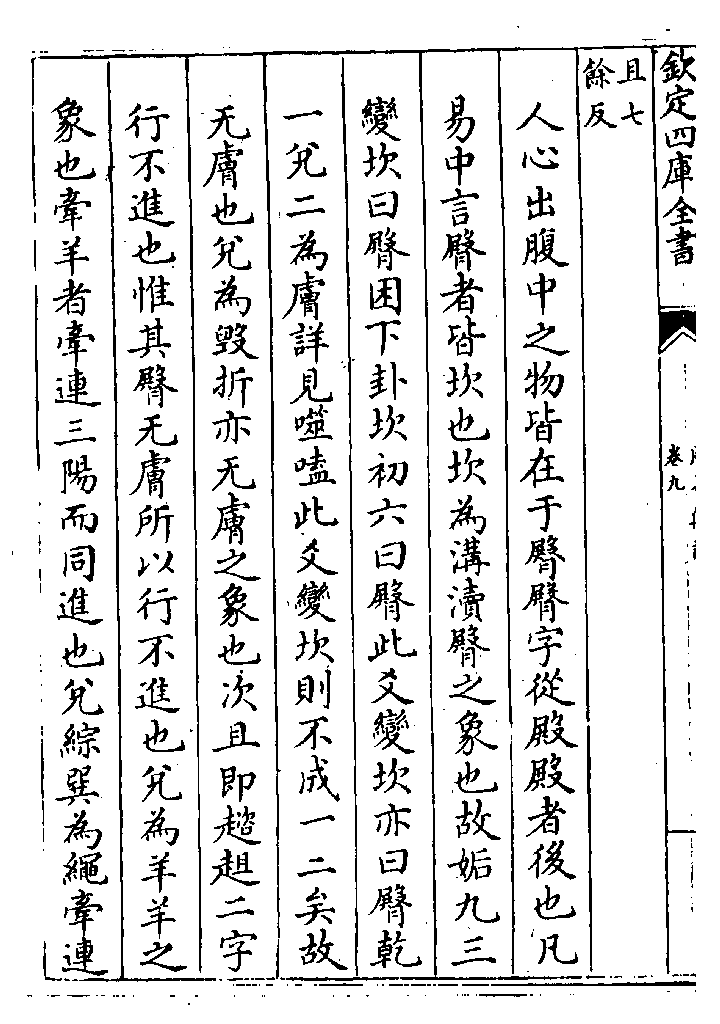 欽定四庫全書
卷九
且七
餘反
人心出腹中之物皆在于臀臀字從殿殿者後也凡
易中言臀者皆坎也坎為溝瀆臀之象也故姤九三
變坎曰臀困下卦坎初六曰臀此爻變坎亦曰臀乾
一兌二為膚詳見噬嗑此爻變坎則不成一二矣故
无膚也兌為毀折亦无膚之象也次且即趑趄二字
行不進也惟其臀无膚所以行不進也兌為羊羊之
象也牽羊者牽連三陽而同進也兌綜巽為繩牽連